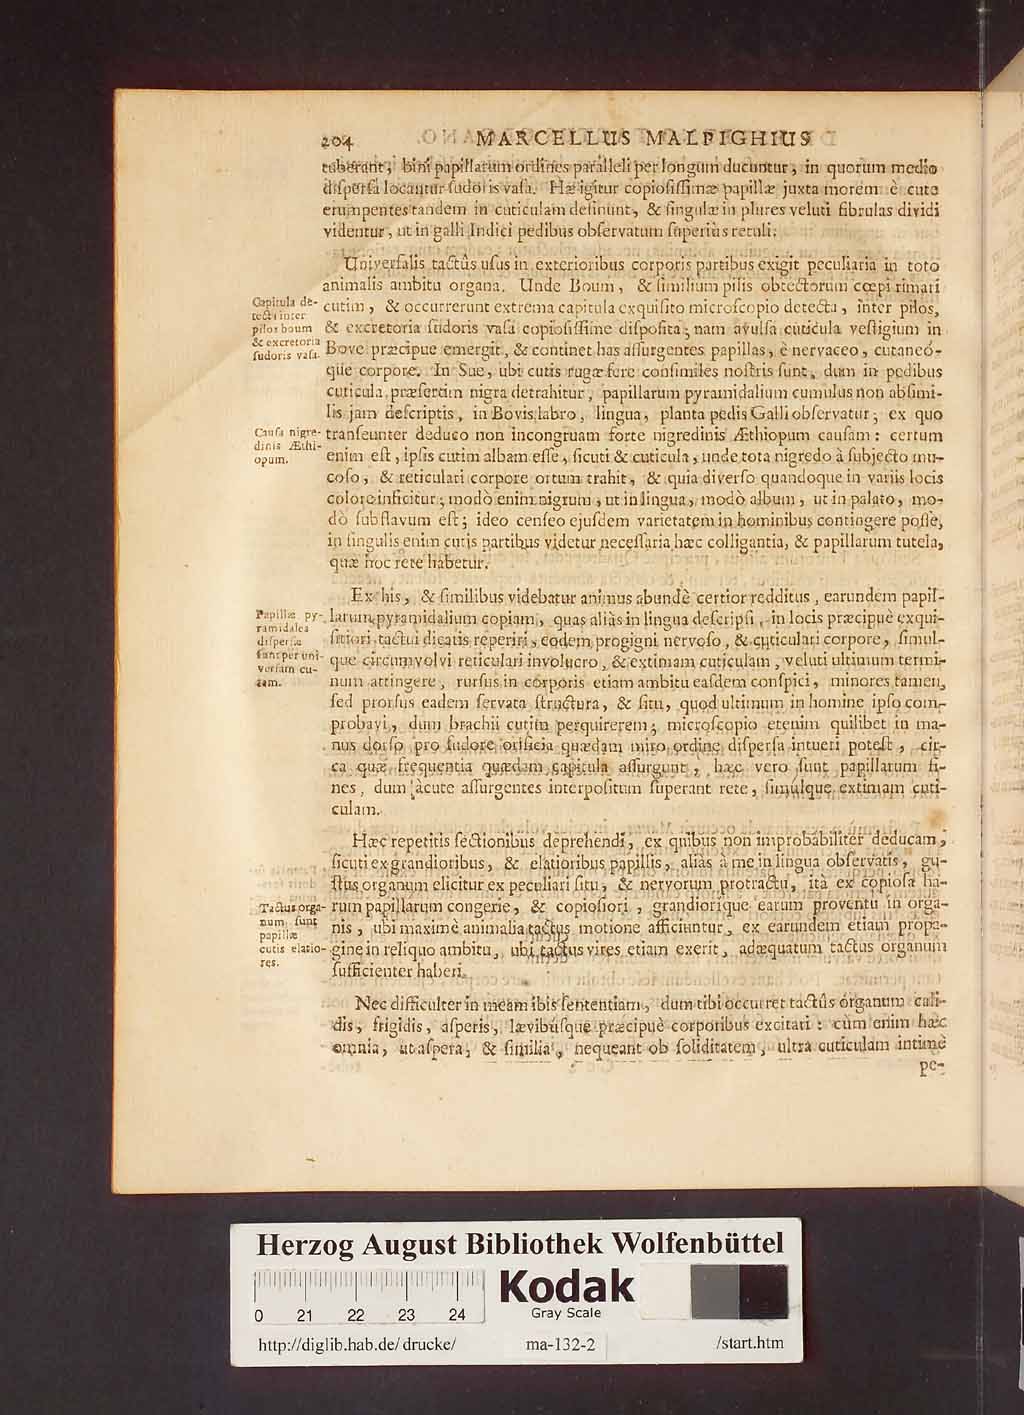 204 MARCELLUS MALPIGHIUS
tuberant, bini papillarum ordines paralleli per longum ducuntur, in quorum medio
dispersa locantur sudoris vasa. Hæ igitur copiosissimæ papillæ juxta morem è cute
erumpentes tandem in cuticulam desinunt, & singulæ in plures veluti fibrulas dividi
videntur, ut in galli Indici pedibus observatum superiùs retuli.
Universalis tactûs usus in exterioribus corporis partibus exigit peculiaria in toto
animalis ambitu organa. Unde Boum, & similium pilis obtectorum cœpi rimari
Capitula de-
tecti inter
pilos boum
& excretoria
sudoris vasa.
cutim, & occurrerunt extrema capitula exquisito microscopio detecta, inter pilos,
& excretoria sudoris vasa copiosissime disposita; nam avulsa cuticula vestigium in
Bove præcipue emergit, & continet has assurgentes papillas, è nervaceo, cutaneó-
que corpore. In Sue, ubi cutis rugæ fere consimiles nostris sunt, dum in pedibus
cuticula præsertim nigra detrahitur, papillarum pyramidalium cumulus non absimi-
lis jam descriptis, in Bovis labro, lingua, planta pedis Galli observatur; ex quo
Causa nigre-
dinis Æthi-
opum.
transeunter deduco non incongruam forte nigredinis Æthiopum causam: certum
enim est, ipsis cutim albam esse, sicuti & cuticula, unde tota nigredo à subjecto mu-
coso, & reticulari corpore ortum trahit, & quia diverso quandoque in variis locis
colore inficitur; modò enim nigrum, ut in lingua, modò album, ut in palato, mo-
dò subflavum est; ideo censeo ejusdem varietatem in hominibus contingere posse,
in singulis enim cutis partibus videtur necessaria hæc colligantia, & papillarum tutela,
quæ hoc rete habetur.
Ex his, & similibus videbatur animus abundè certior redditus, earundem papil-
Papillæ py-
ramidales
dispersæ
sunt per uni-
versam cu-
tem.
larum pyramidalium copiam, quas aliàs in lingua descripsi, in locis præcipuè exqui-
sitiori tactui dicatis reperiri, eodem progigni nervoso, & cuticulari corpore, simul-
que circumvolvi reticulari involucro, & extimam cuticulam, veluti ultimum termi-
num attingere, rursus in corporis etiam ambitu easdem conspici, minores tamen,
sed prorsus eadem servata structura, & situ, quod ultimum in homine ipso com-
probavi, dum brachii cutim perquirerem; microscopio etenim quilibet in ma-
nus dorso pro sudore orificia quædam miro ordine dispersa intueri potest, cir-
ca quæ frequentia quædam capitula assurgunt, hæc vero sunt papillarum fi-
nes, dum acute assurgentes interpositum superant rete, simulque extimam cuti-
culam.
Hæc repetitis sectionibus deprehendi, ex quibus non improbabiliter deducam,
sicuti ex grandioribus, & elatioribus papillis, aliàs à me in lingua observatis, gu-
stus organum elicitur ex peculiari situ, & nervorum protractu, ità ex copiosa ha-
Tactus orga-
num sunt
papillæ
cutis elatio-
res.
rum papillarum congerie, & copiosiori, grandiorique earum proventu in orga-
nis, ubi maximè animalia tactus motione afficiuntur, ex earundem etiam propa-
gine in reliquo ambitu, ubi tactus vires etiam exerit, adæquatum tactus organum
sufficienter haberi.
Nec difficulter in meam ibis sententiam, dum tibi occurret tactûs organum cali-
dis, frigidis, asperis, lævibúsque præcipuè corporibus excitari: cùm enim hæc
omnia, ut aspera, & similia, nequeant ob soliditatem, ultra cuticulam intimè
pe-
Herzog August Bibliothek Wolfenbüttel
0 21 22 23 24
Kodak
Gray Scale
http://diglib.hab.de/drucke/ ma-132-2 /start.htm